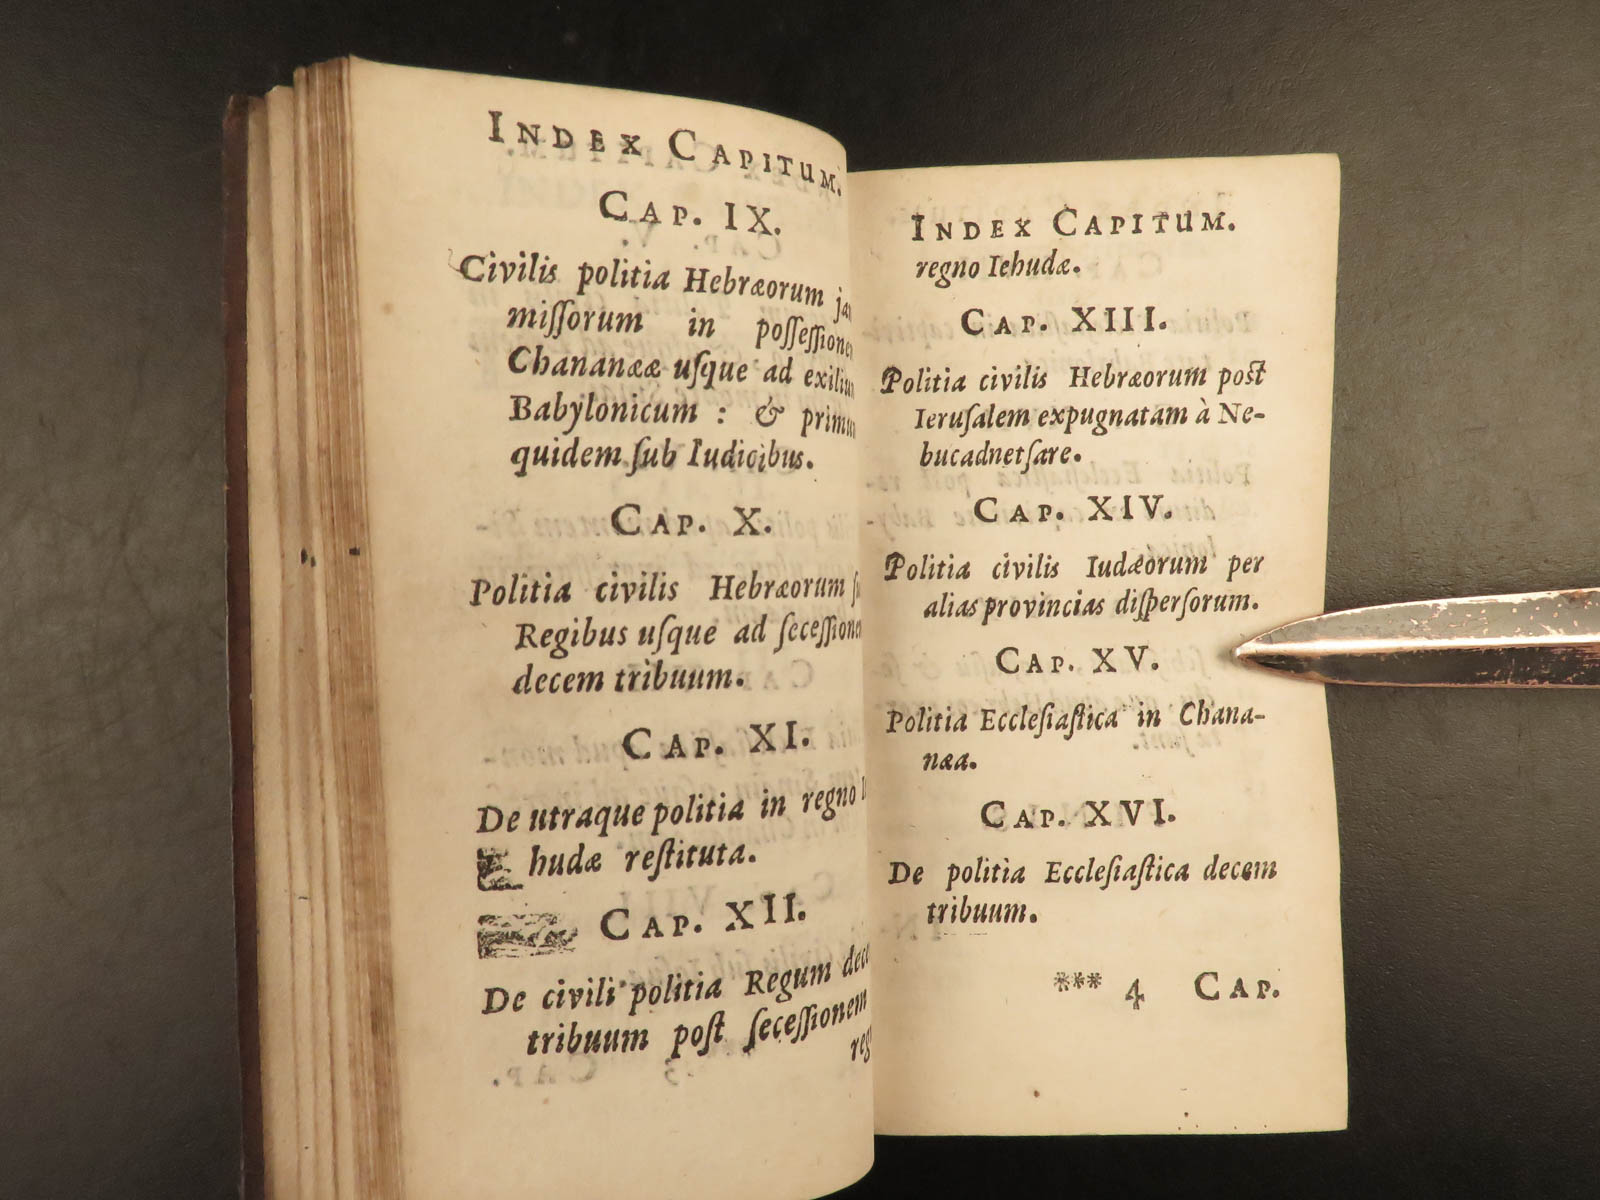 INDEX CAPITUM.
CAP. IX.
Civilis politia Hebræorum
miſſorum in poſſeſſione
Chananææ uſque ad
Babylonicum : &
quidem ſub Iudicibus.
CAP. X.
Politia civilis Hebræorum
Regibus uſque ad
decem tribuum.
CAP. XI.
De utraque politia in regno
hudæ reſtituta.
CAP. XII.
De civili politia Regum
tribuum poſt ſeceſſionem
INDEX CAPITUM.
regno Iehudæ.
CAP. XIII.
Politia civilis Hebræorum poſt
Ieruſalem expugnatam à Ne-
bucadnetſare.
CAP. XIV.
Politia civilis Iudæorum per
alias provincias diſperſorum.
CAP. XV.
Politia Eccleſiaſtica in Chana-
næa.
CAP. XVI.
De politia Eccleſiaſtica decem
tribuum.
*** 4 CAP.